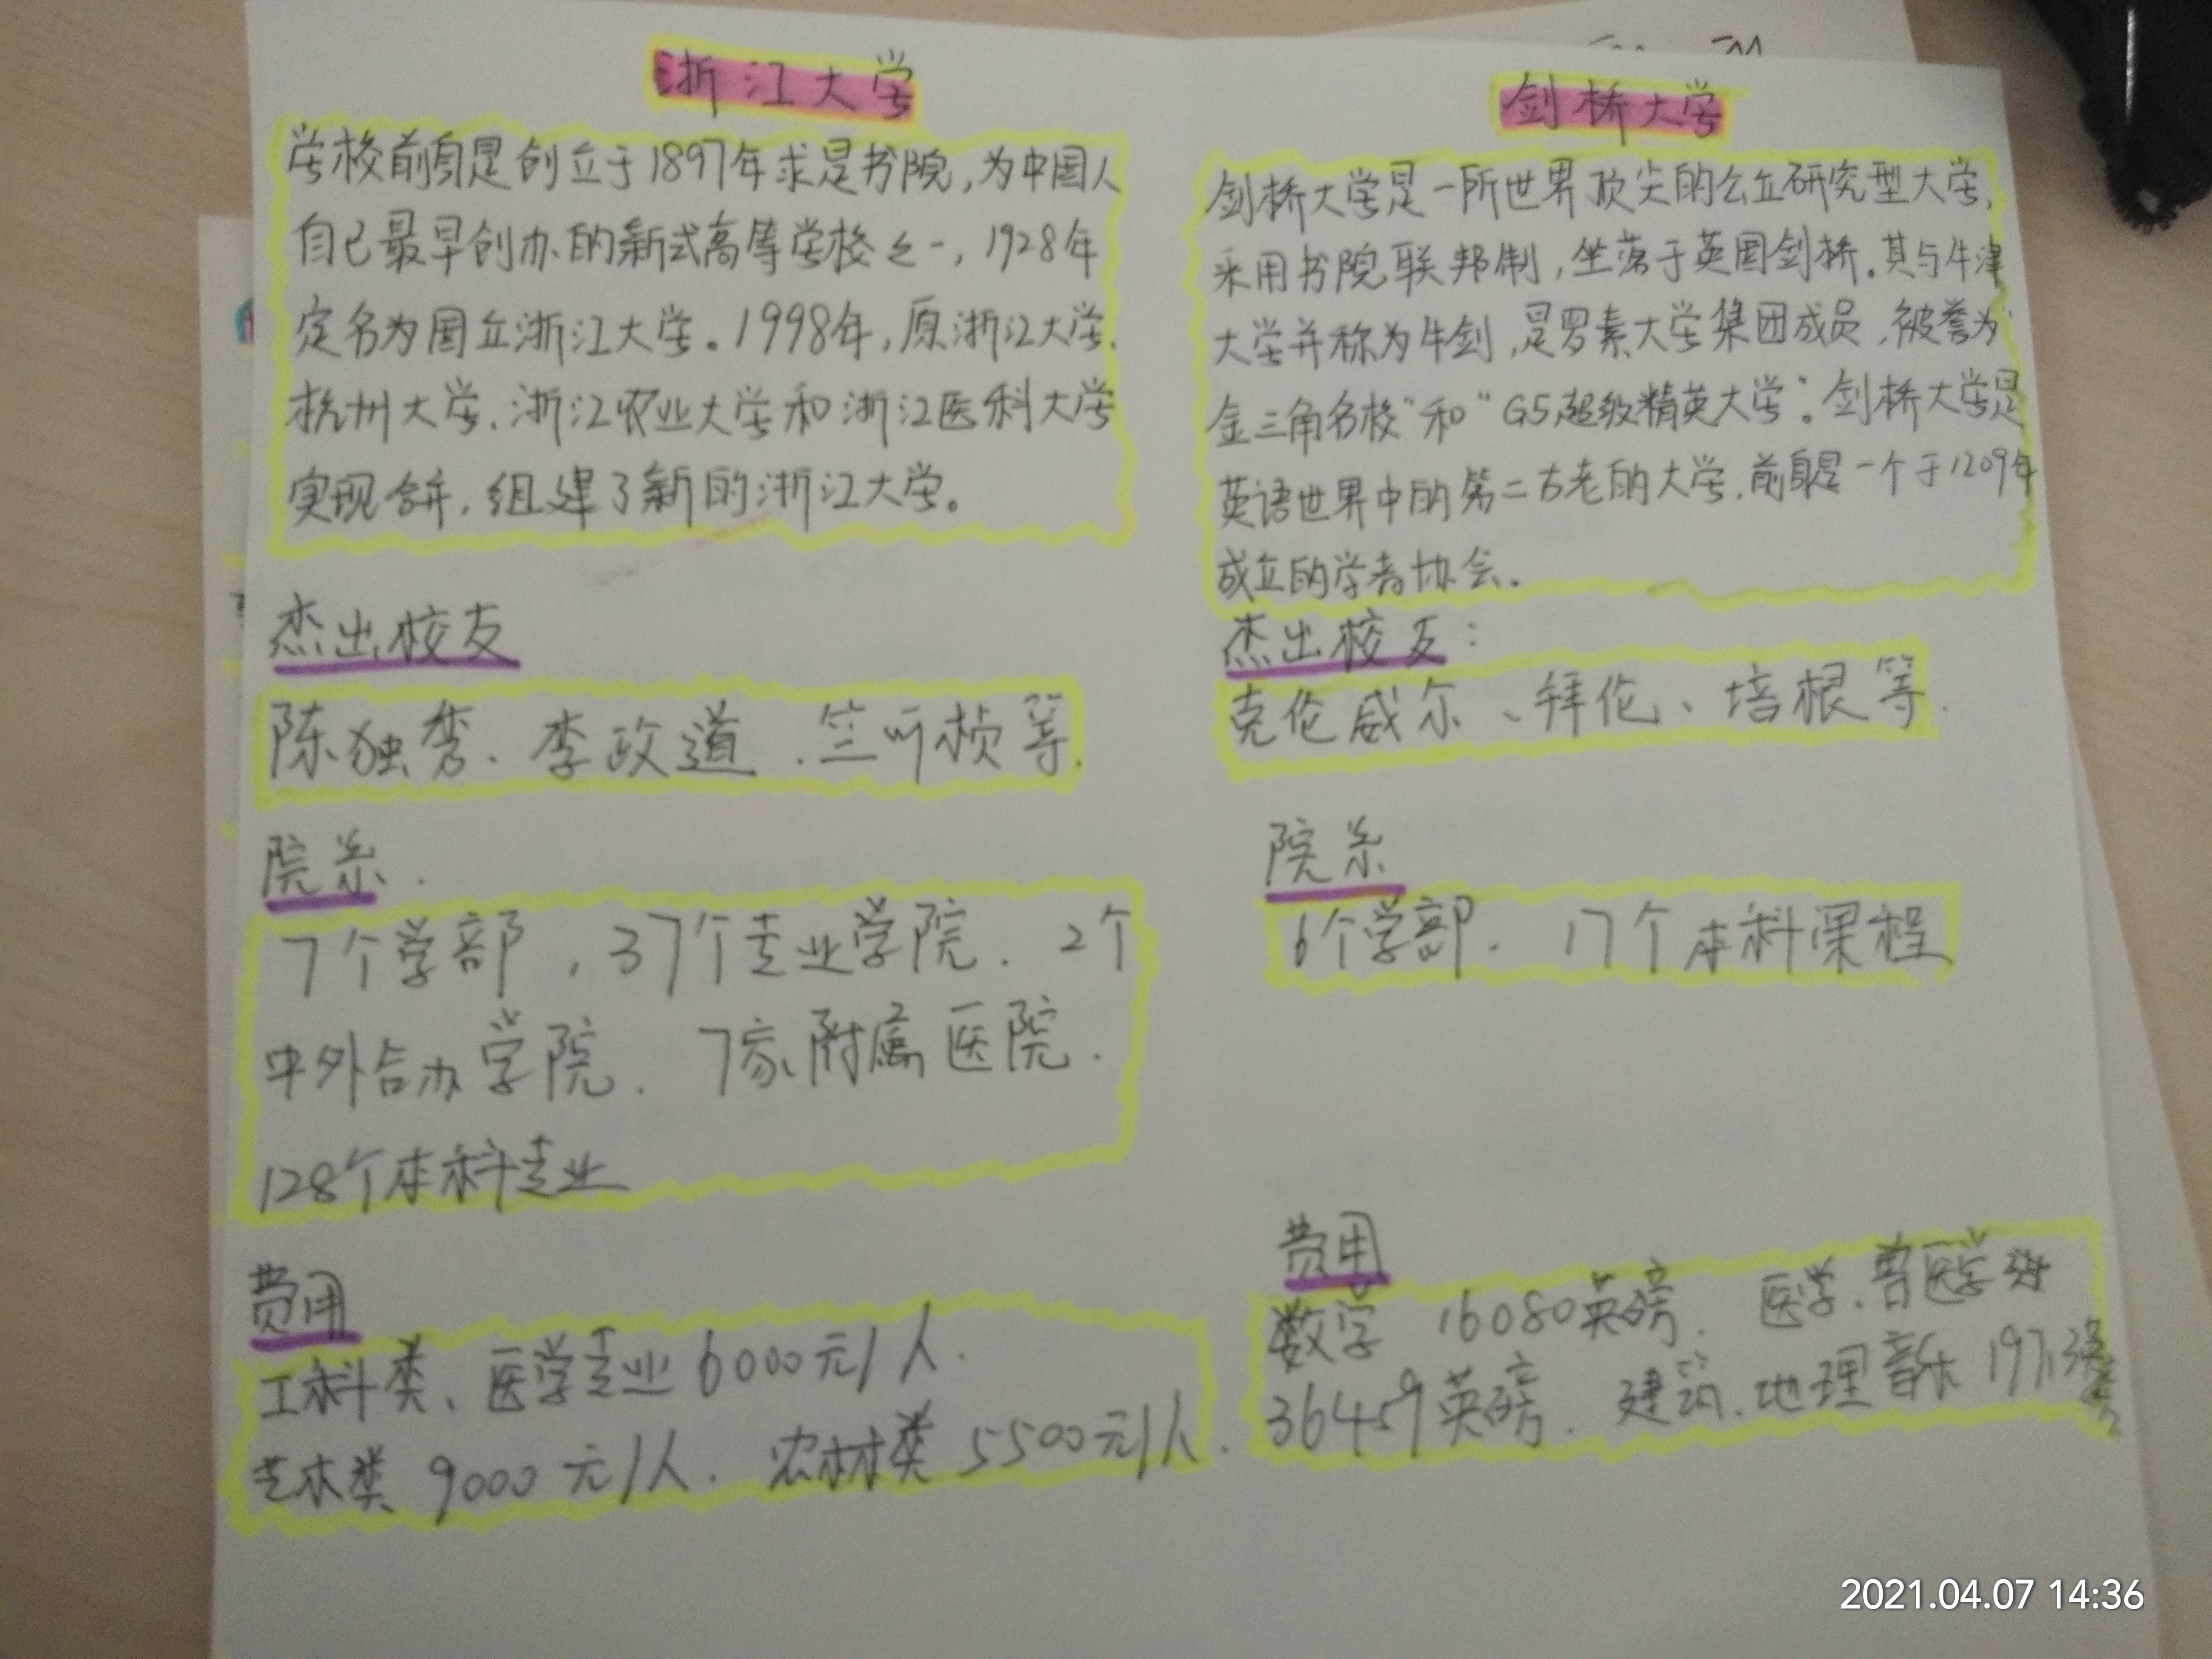 浙江大学
学校前身是创立于1897年求是书院,为中国人
自己最早创办的新式高等学校之一,1928年
定名为国立浙江大学。1998年,原浙江大学、
杭州大学、浙江农业大学和浙江医科大学
实现合并,组建了新的浙江大学。
杰出校友
陈独秀、李政道、竺可桢等.
院系.
7个学部,37个专业学院.2个
中外合办学院.7家附属医院.
128个本科专业
费用
工科类、医学专业6000元/人.
艺术类9000元/人.农林类5500元/人.
剑桥大学
剑桥大学是一所世界顶尖的公立研究型大学,
采用书院联邦制,坐落于英国剑桥.其与牛津
大学并称为牛剑,是罗素大学集团成员,被誉为"
金三角名校"和"G5超级精英大学"。剑桥大学是
英语世界中的第二古老的大学,前身是一个于1209年
成立的学者协会.
杰出校友:
克伦威尔、拜伦、培根等.
院系
6个学部.17个本科课程
费用
数学 16080英磅. 医学、兽医学
36459英磅. 建筑、地理音乐
2021.04.07 14:36